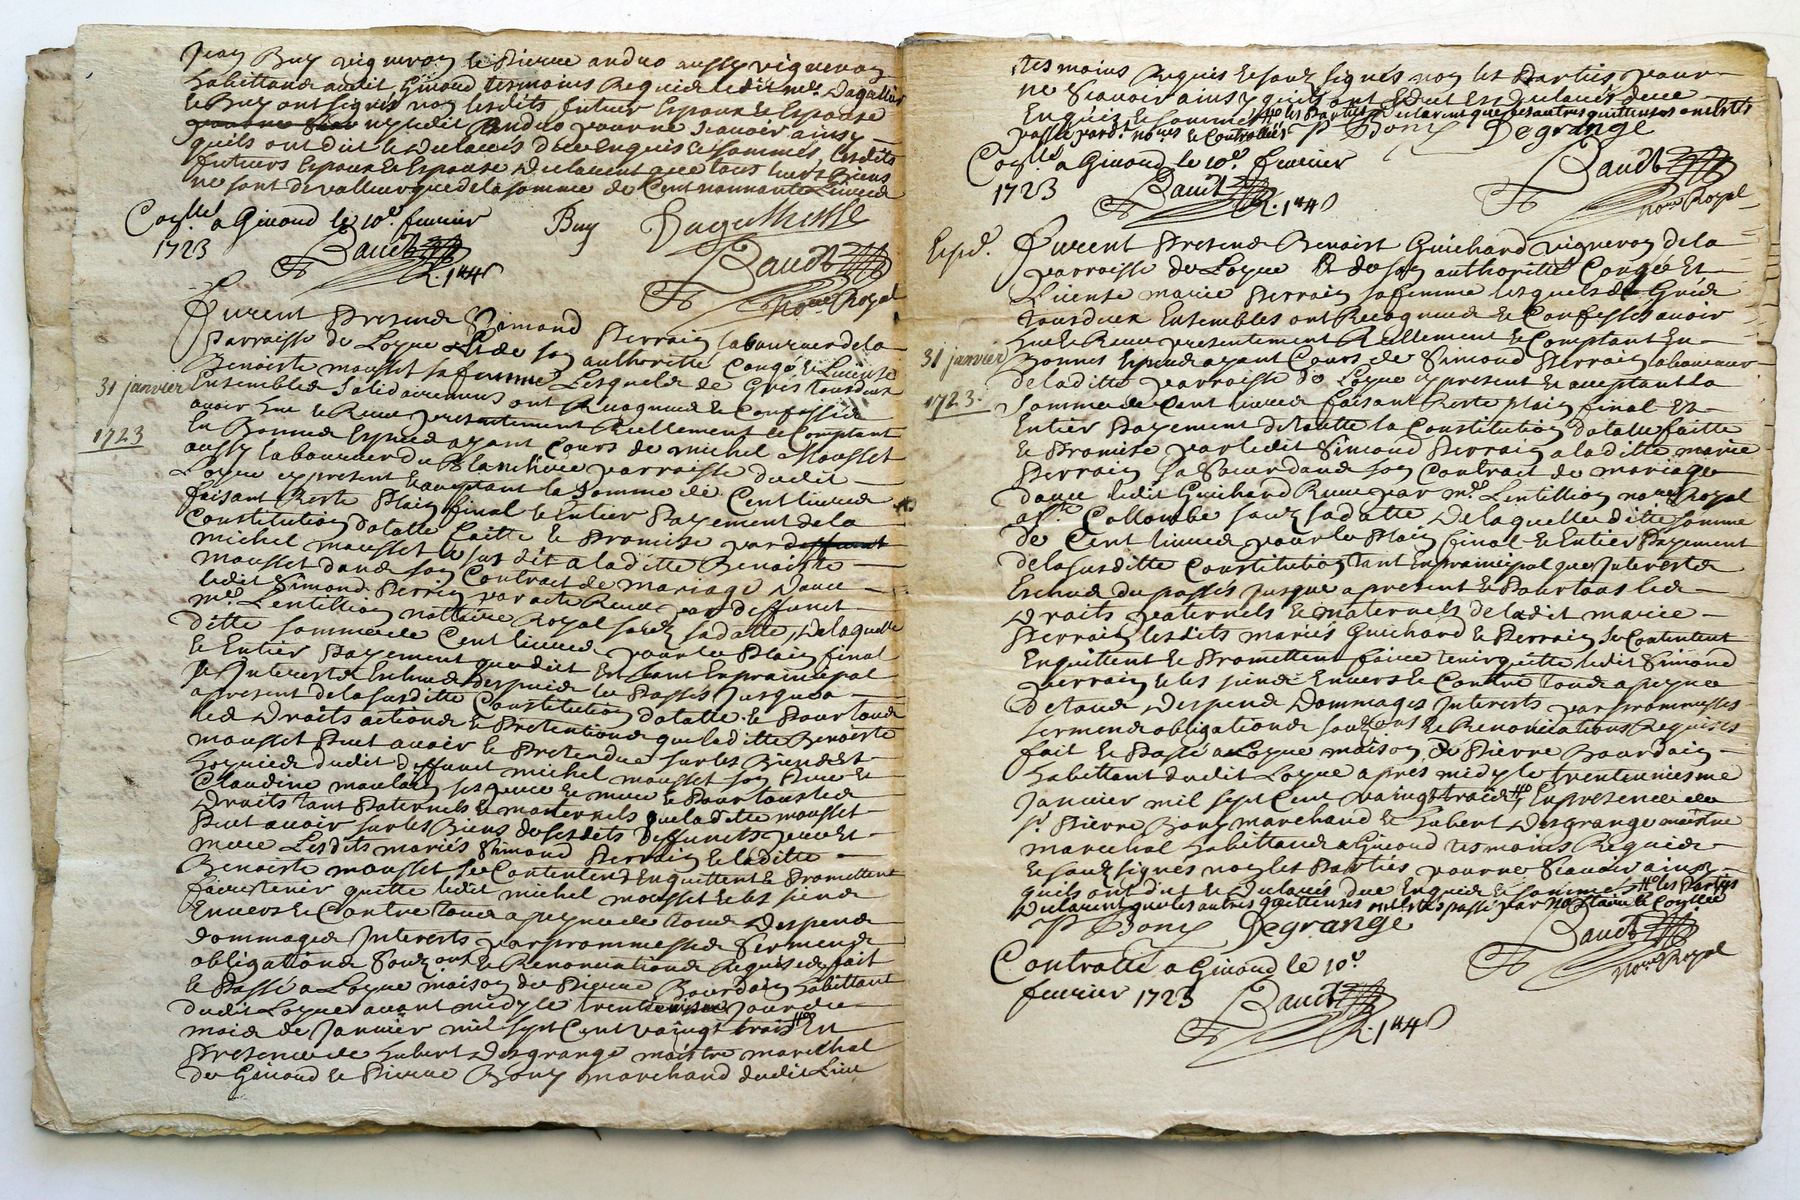 Jean Buy vigneron & Pierre anduo aussy vigneron
habittands audit Givord tesmoins Requis ledit mr. Dagallier
& Buy ont signés non lesdits futeur Espoux & Espouse
ny ledit Anduo pour ne scavoir ainsy
quils ont dit & declarés deue enquis & sommés, lesdits
futurs Espoux & Espouse declarent que tous leurs Biens
ne sont de valleur que de la somme de Cent nonnante Livres
a Givord le 10e. feurier
1723
Buy
Baudt
Baudt
Royal
furent Presend Simond Perrain laboureur de la
Parroisse de Loyre & de son authorité Congé & Licente
Benoiste mousset sa femme Lesquels de Gréé tousdeux
31 janvier
Ensembled solidairement ont Recognud & Confessée
avoir heu & Receu presentement Reellement & Comptant
1723
En Bonned Espeed ayant Cours de michel Mousset
aussy laboureur du parroisse dudit
Loyre cy present & aceptant la Somme de Cent livred
faisant Reste Plain final & Entier Payement de la
Constitution dotalle faitte & Promise par
michel mousset le sus dit a laditte Benoiste
mousset dans son Contract de mariage avec
ledit Simond Perrin par acte Receu par deffunct
me. Lentillion nottaire Royal souz sa datte, De laquelle
ditte somme de Cent livred pour le Plain final
& Entier Payement que dit Est tant En principal
& Interests Escheud Despuid le Passé jusqua
apresent de la susditte Constitution dotalle & Pour toud
led Droits actiond & Pretentiond que laditte Benoiste
mousset Peut avoir & Pretendre sur les Biend &
dudit Deffunct michel mousset son Pere &
Claudine ses pere & mere & Pour tous led
Droits tant Paternels & maternels que laditte mousset
Peut avoir sur les Biens de sesdits Deffuncts pere &
mere Lesdits mariés Simond Perrain & laditte
Benoiste mousset se Contentend Enquittent & Promettent
faire tenir quitte ledit michel mousset & les siend
Enuers & Contre toud a peyne de toud Despend
Dommaged Interests par promessed Sermend
obligationd Souz & Renonciationd Requised fait
& Passé a Loyre maison de Pierre Bourdain habittant
dudit Loyre avant midy le trente jour du
mois de Janvier mil sept Cent vaingt trois En
Presence de hubert Desgrange maistre marechal
de Givord & Pierre Bony marchand dudit Lieu
tesmoins Requis & souz signés non les Parties pour
ne scavoir ainsy quils ont dit & declarés deue
Enquis & sommés les Parties declarent que les autres quittances ont estés
passé pard. nores & Controllées P Bony Degrange
a Givord le 10e. feurier
1723
Baudt
Baudt
Royal
Exped.
furent Presend Benoist Guichard vigneron de la
parroisse de Loyre & de son authorité Congée &
Licente marie Perrain sa femme lesquels de Gréé
tousdeux Ensembles ont Recognud & Confessés avoir
heu & Receu presentement Reellement & Comptant En
31 janvier
Bonnes Espeed ayant Cours de Simond Perrain laboureur
de laditte parroisse de Loyre cy present & aceptant la
1723.
somme de Cent livred faisant Reste plain final &
Entier Payement de toutte la Constitution dotalle faitte
& Promise par ledit Simond Perrain a laditte marie
Perrain sa Soeur dans son Contrat de mariage
avec ledit Guichard Receu par me. Lentillion nore. Royal
a Ste. Collombe souz sa datte De laquelle ditte somme
de Cent livred pour le Plain final & Entier Payement
de la susditte Constitution tant En principal que Interests
Escheud du passés jusque apresent & Pour tous led
Droits paternels & maternels de ladit marie
Perrain lesdits mariés Guichard & Perrain se Contentent
Enquittent & Promettent faire tenir quitte ledit Simond
perrain & les siend Envers & Contre toud a peyne
de toud Despend Dommages Interests par promesses
sermend obligationd souz & Renonciations Requises
fait & Passé a Loyre maison de Pierre Bourdain
habittant dudit Loyre apres midy le trente uniesme
Janvier mil sept Cent vaingt trois En presence de
sr. Pierre Bony marchand & hubert Desgrange maistre
marechal habittands a Givord tesmoins Requis
& souz signés non les Parties pour ne scavoir ainsy
quils ont dit & declarés deue Enquis & sommés les Parties
declarent que les autres quittances ont estés passé par nottaire &
P Bony Degrange
Baudt
Royal
Controllé a Givord le 10e.
feurier 1723
Baudt